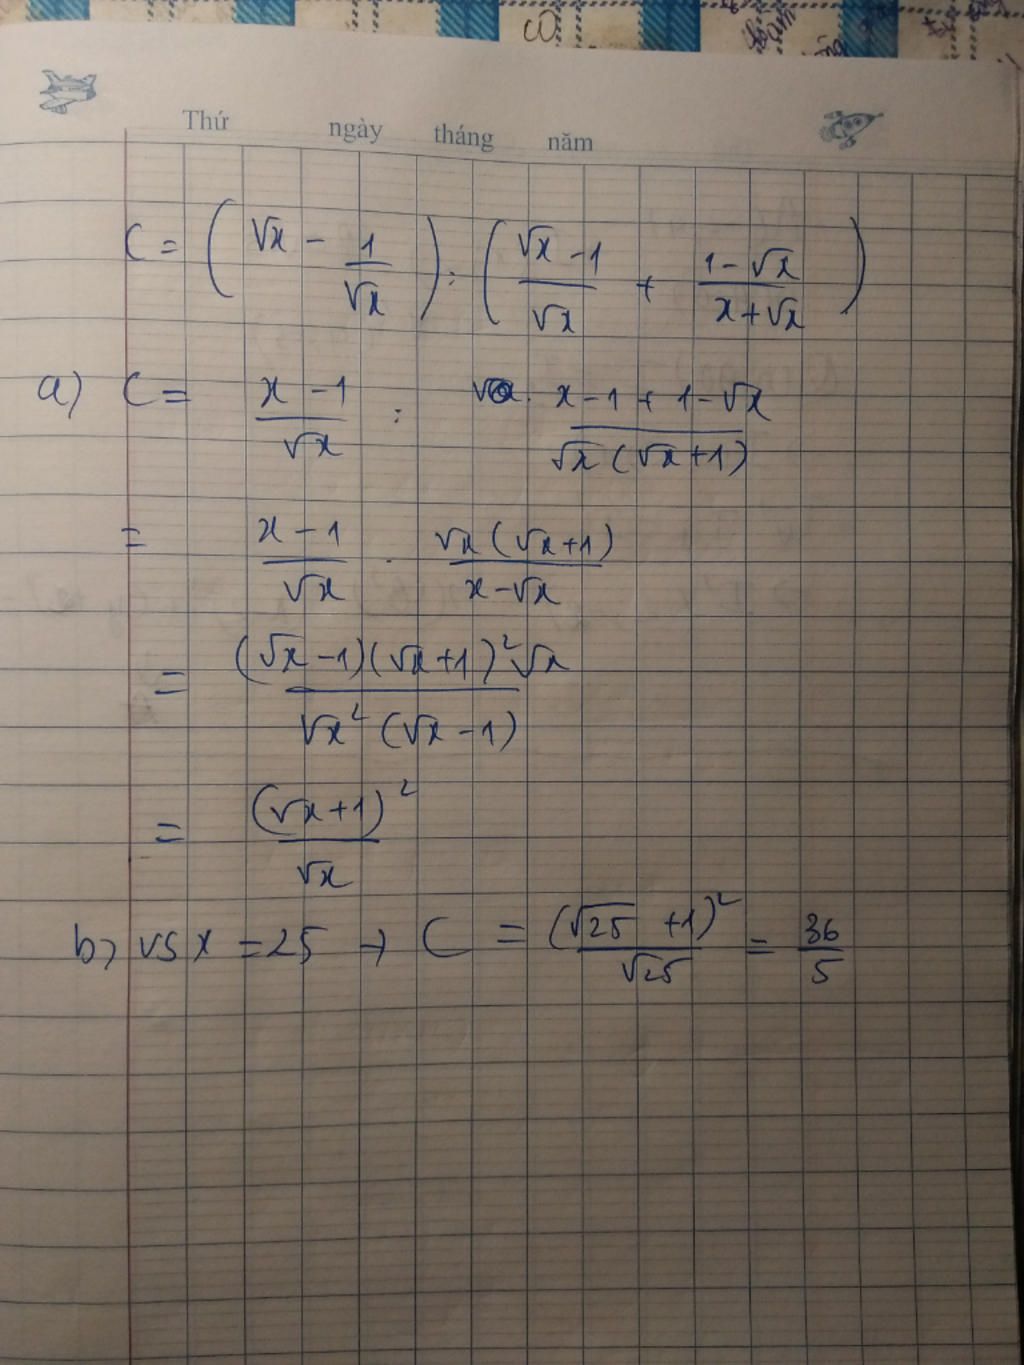 Thứ ngày tháng năm
C = (√x - 1/√x) : ((√x - 1)/√x + (1 - √x)/(x + √x))
a) C = (x - 1)/√x : (x - 1 + 1 - √x)/(√x (√x + 1))
= (x - 1)/√x · (√x (√x + 1))/(x - √x)
= ((√x - 1)(√x + 1)² √x)/(√x² (√x - 1))
= (√x + 1)²/√x
b) vs x = 25 → C = (√25 + 1)²/√25 = 36/5